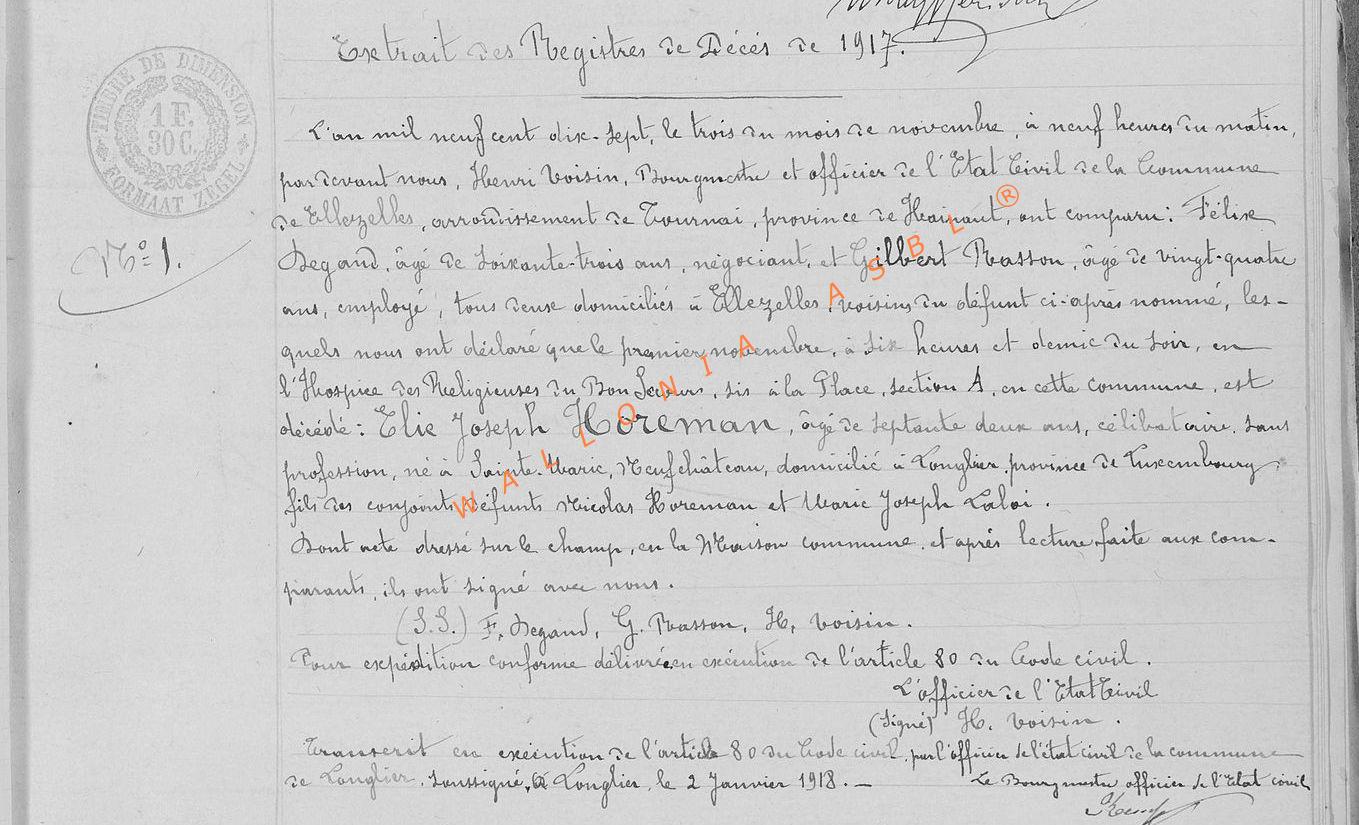 Extrait des Registres de Décès de 1917.
TIMBRE DE DIMENSION
1 F.
30 C.
FORMAAT ZEGEL
N° 1.
L'an mil neuf cent dix-sept, le trois du mois de novembre, à neuf heures du matin,
pardevant nous, Henri Voisin, Bourgmestre et officier de l'Etat Civil de la Commune
de Ellezelles, arrondissement de Tournai, province de Hainaut, ont comparu: Félix
Degand, âgé de soixante-trois ans, négociant, et Gilbert Rasson, âgé de vingt-quatre
ans, employé, tous deux domiciliés à Ellezelles, voisins du défunt ci-après nommé, les-
quels nous ont déclaré que le premier novembre, à six heures et demie du soir, en
l'Hospice des Religieuses du Bon Secours, sis à la Place, section A, en cette commune, est
décédé: Elie Joseph Horeman, âgé de septante deux ans, célibataire, sans
profession, né à Sainte-Marie, Neufchâteau, domicilié à Longlier, province de Luxembourg,
fils des conjoints défunts Nicolas Horeman et Marie Joseph Laloi.
Dont acte dressé sur le champ, en la Maison commune, et après lecture faite aux com-
parants, ils ont signé avec nous.
(S.S.) F. Degand, G. Rasson, H. Voisin.
Pour expédition conforme délivrée en exécution de l'article 80 du Code civil.
L'officier de l'Etat Civil
(signé) H. Voisin.
Transcrit en exécution de l'article 80 du Code civil, par l'officier de l'état civil de la commune
de Longlier, soussigné, à Longlier, le 2 Janvier 1918. —
Le Bourgmestre officier de l'Etat civil
WALLONIA ASBL ®